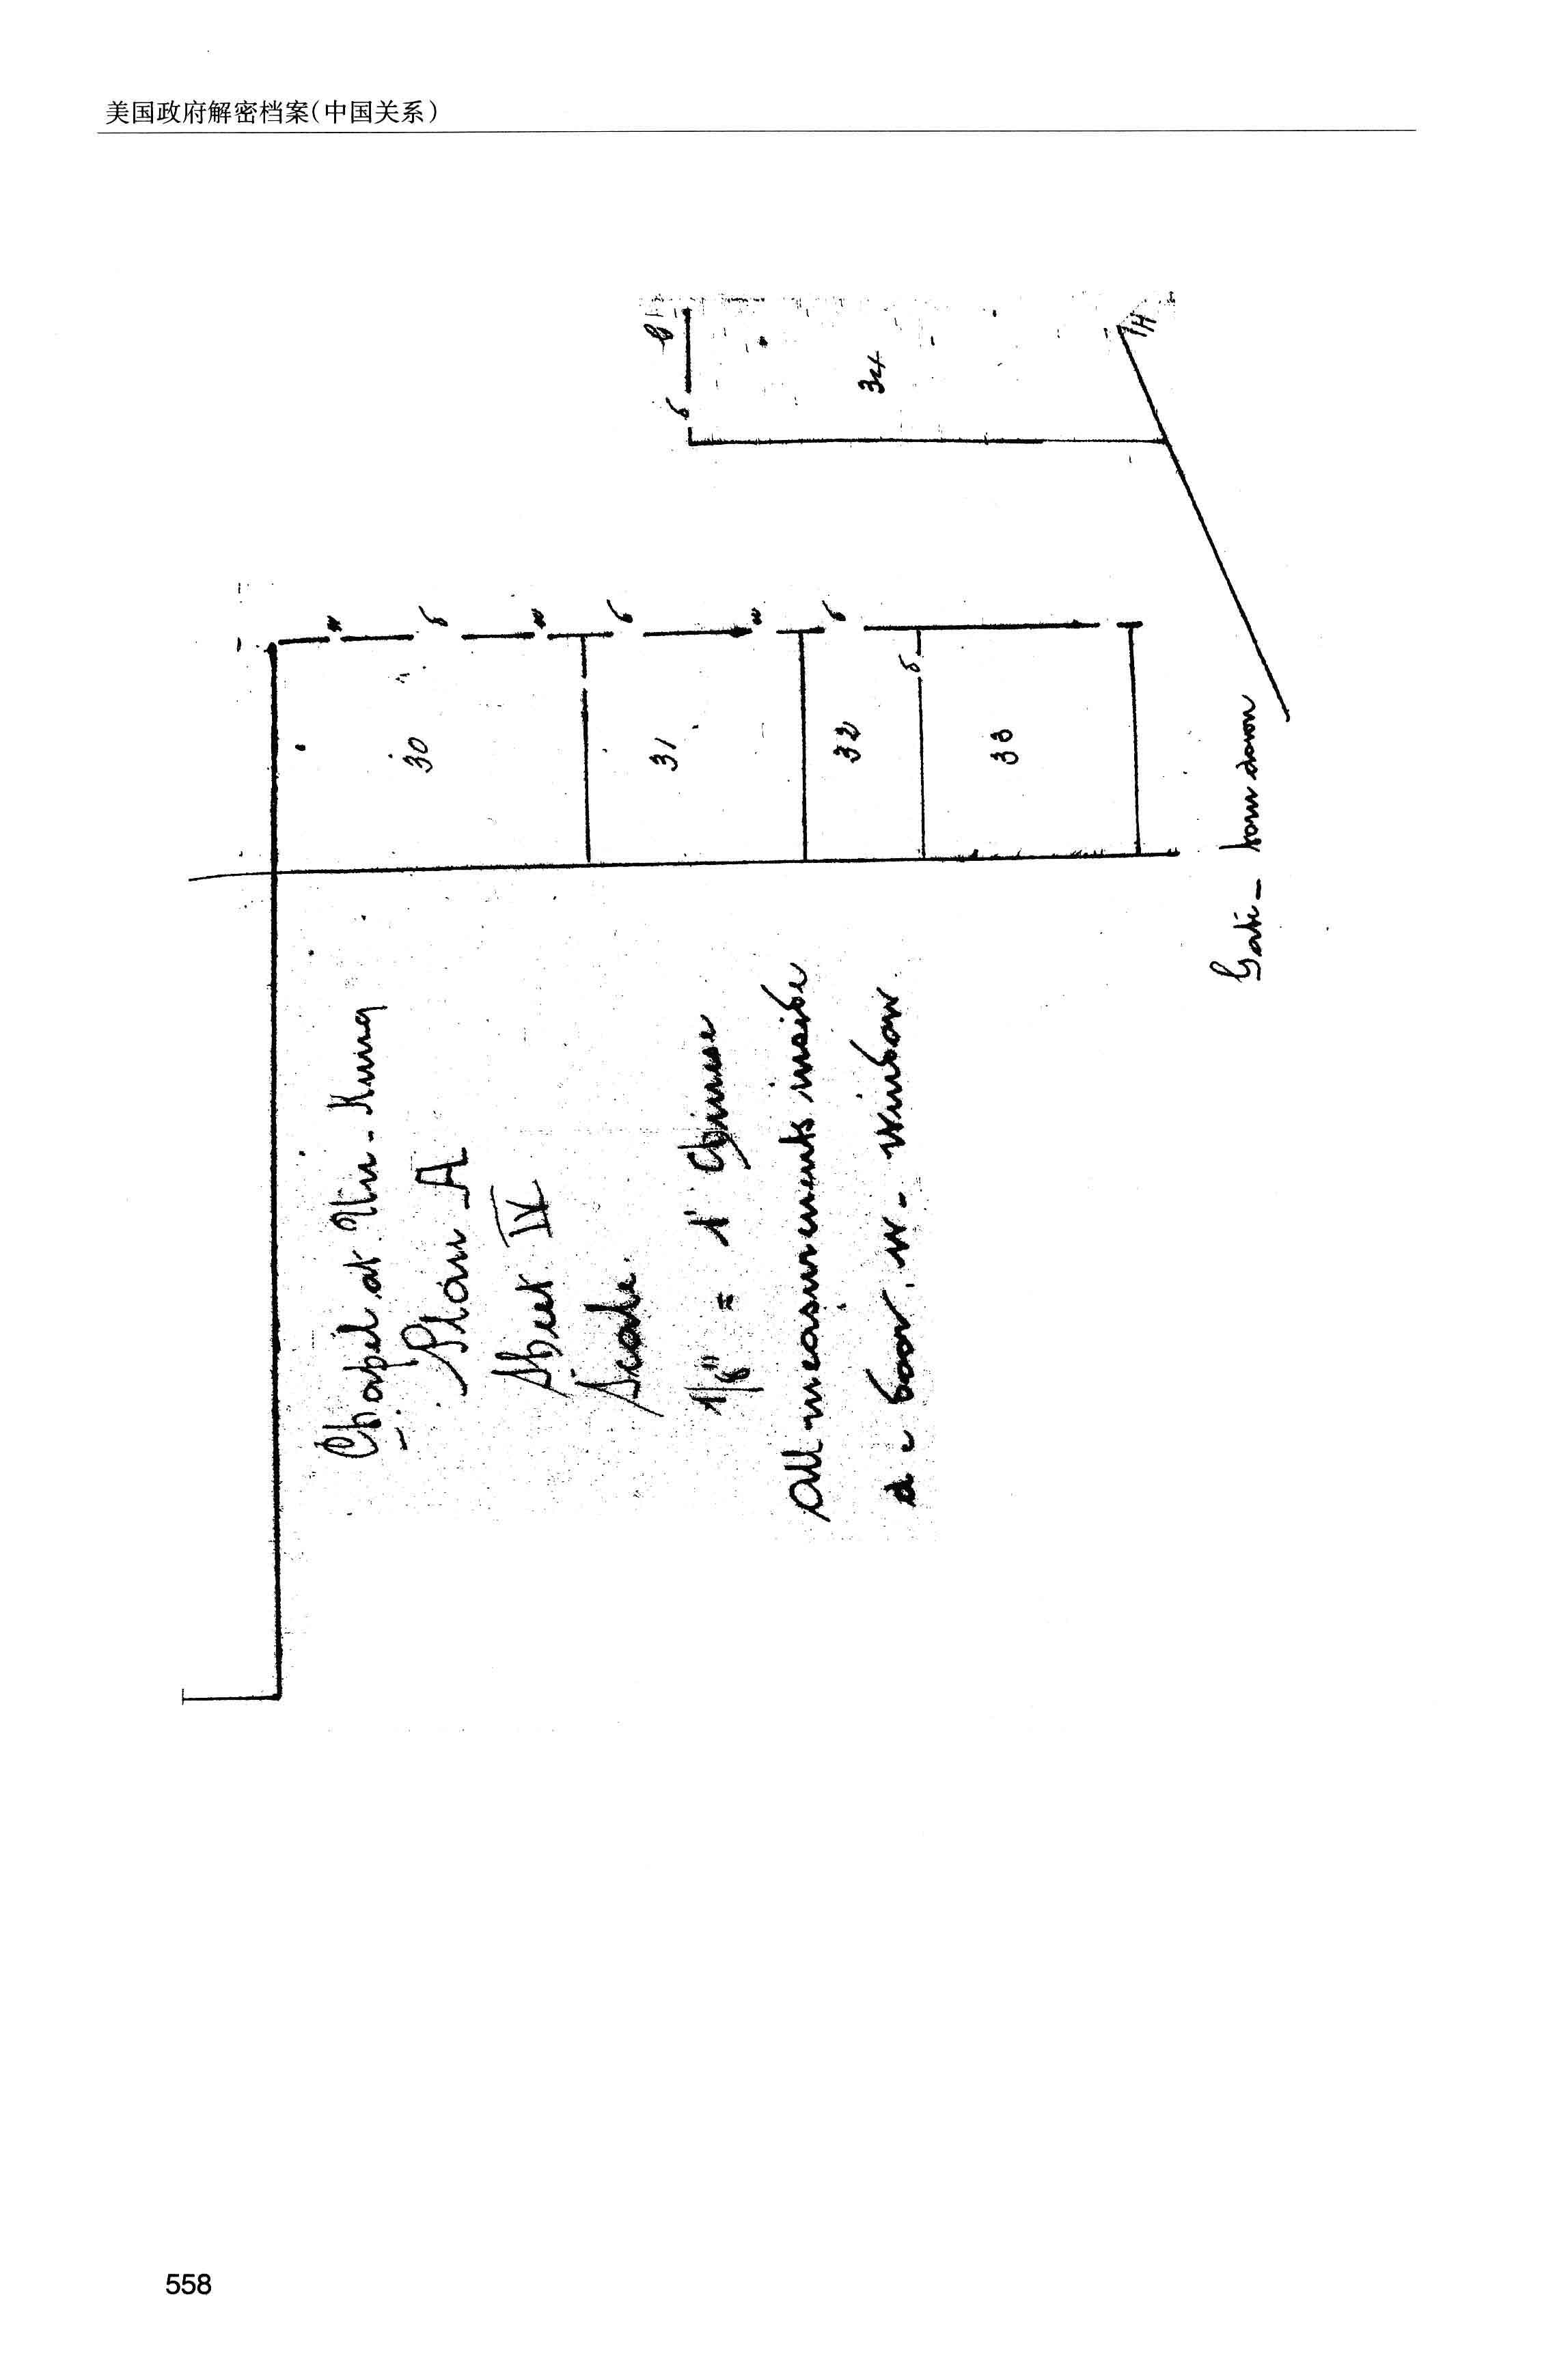 美国政府解密档案(中国关系)
Chapel at Yiu-Kung
Plan A
Sheet IV
Scale.
1/8" = 1' Chinese
All measurements inside
d - door. w - window
30
31
32
33
34
w
d
w
d
w
d
d
d
Gate - torn down
558